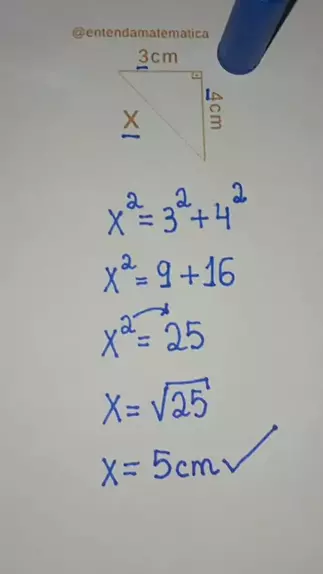 @entendamatematica
3cm
4cm
X
x² = 3² + 4²
x² = 9 + 16
x² = 25
x = √25
x = 5cm